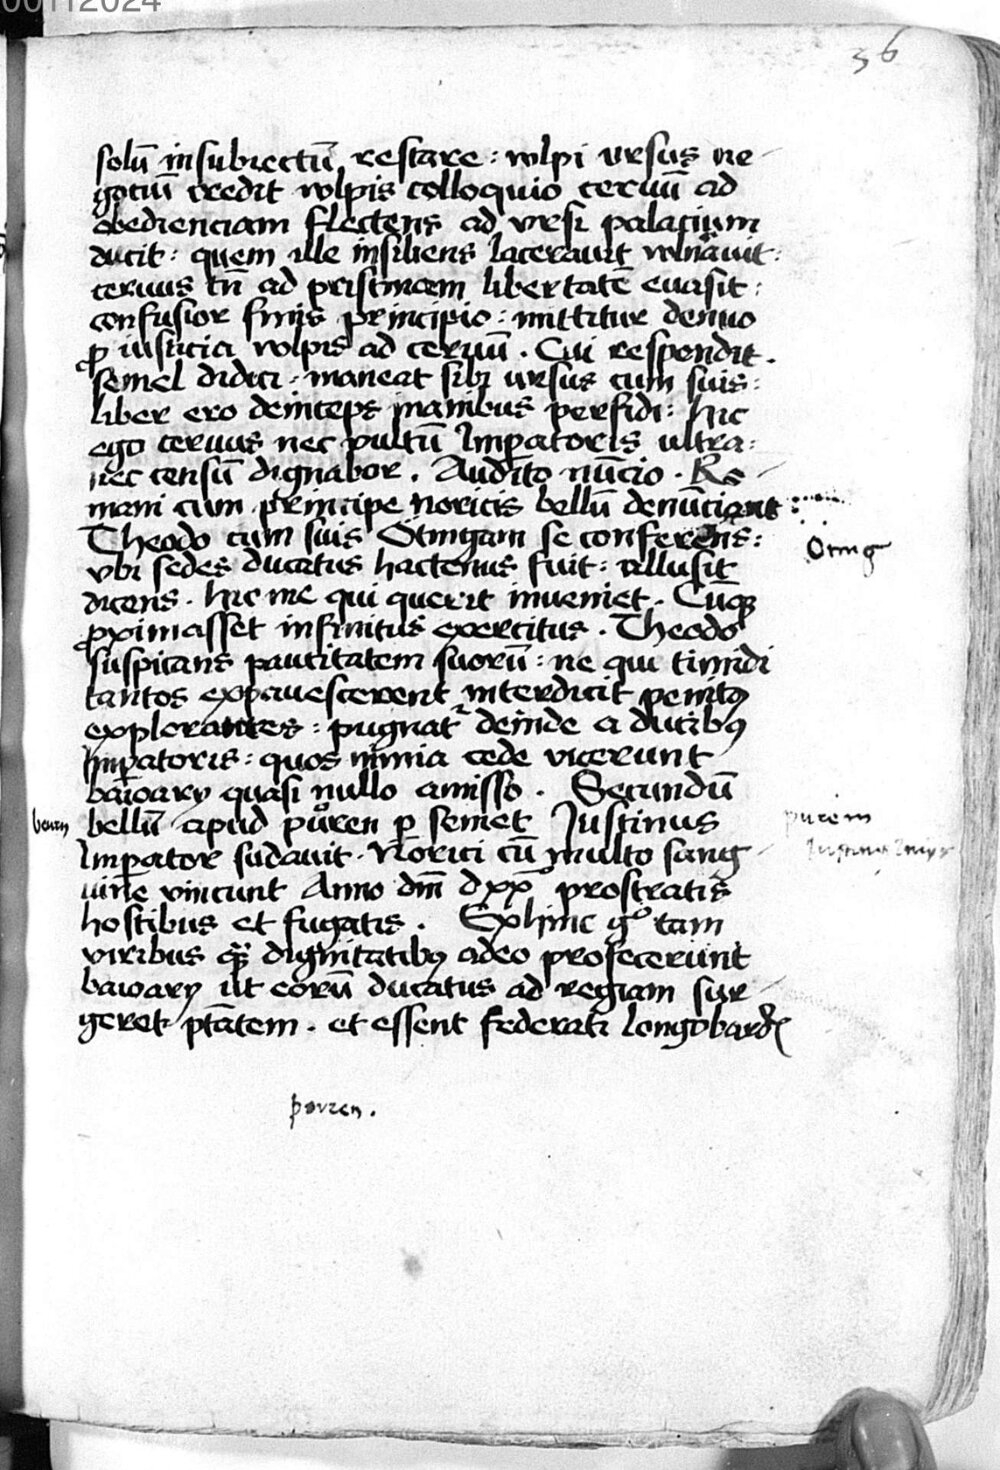 00112024
36
solū insubiectū restare : wlpi vrsus ne
gociū credit wlpis colloquio ceruū ad
obedienciam flectens ad vrsi palacium
ducit : quem ille insiliens lacerauit wlnauit :
ceruus tn̄ ad pristinam libertatē euasit :
confusior finis principio : mittitur denuo
ꝓ iusticia wlpis ad ceruū . Cui respondit .
semel didici . maneat sibi vrsus cum suis :
liber ero deinceps manibus perfidi : hic
ego ceruus nec vultū Imꝑatoris ultra :
nec censū dignabor . Audito nūcio . Ro
mani cum principe noricis bellū denūciant :
Theodo cum suis Otingam se conferens :
Oting
vbi sedes ducatus hactenus fuit : allusit
dicens . hic me qui querit inueniet . Cūqꝫ
ꝓximasset infinitus exercitus . Theodo
suspicans paucitatem suorū : ne qui timidi
tantos expauescerent interdicit penitꝰ
explorantes : pugnat̉ deinde a ducibꝰ
Imꝑatoris : quos nimia cede vicerunt
baioary quasi nullo amisso . Secundū
bellū apud půren ꝑ semet Iustinus
purein
Imꝑator sudauit . Norici cū multo sang
uine vincunt Anno dn̄i dxx° prostratis
hostibus et fugatis . Exhinc gͦ tam
viribus qͣꝫ dignitatibꝰ adeo profecerunt
baioary ut eorū ducatus ad regiam sur
geret ptātem . et essent federati longobardꝭ
pouren .